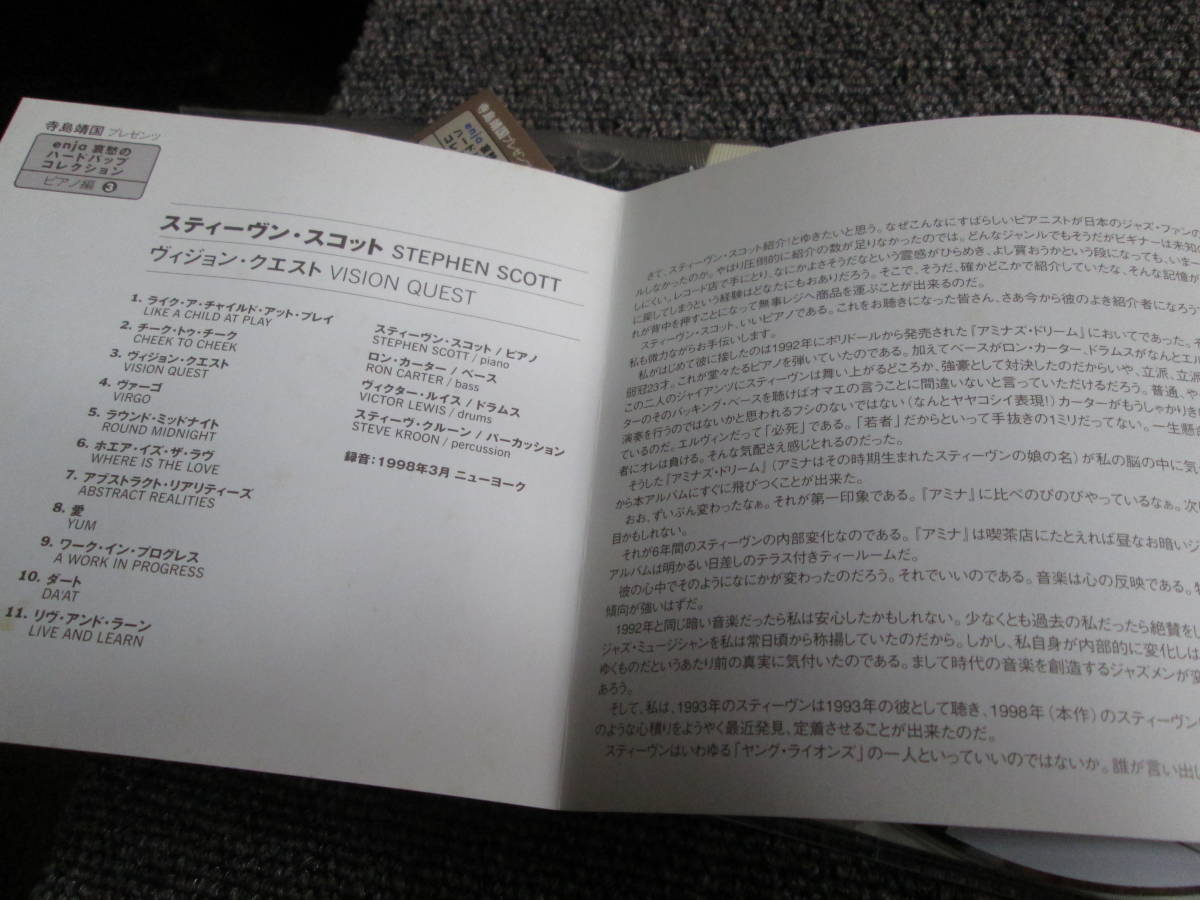 寺島靖国 プレゼンツ
enja 哀愁の
ハードバップ
コレクション
ピアノ編 ❸
スティーヴン・スコット STEPHEN SCOTT
ヴィジョン・クエスト VISION QUEST
1. ライク・ア・チャイルド・アット・プレイ
LIKE A CHILD AT PLAY
2. チーク・トゥ・チーク
CHEEK TO CHEEK
3. ヴィジョン・クエスト
VISION QUEST
4. ヴァーゴ
VIRGO
5. ラウンド・ミッドナイト
ROUND MIDNIGHT
6. ホエア・イズ・ザ・ラヴ
WHERE IS THE LOVE
7. アブストラクト・リアリティーズ
ABSTRACT REALITIES
8. 愛
YUM
9. ワーク・イン・プログレス
A WORK IN PROGRESS
10. ダート
DA'AT
11. リヴ・アンド・ラーン
LIVE AND LEARN
スティーヴン・スコット / ピアノ
STEPHEN SCOTT / piano
ロン・カーター / ベース
RON CARTER / bass
ヴィクター・ルイス / ドラムス
VICTOR LEWIS / drums
スティーヴ・クルーン / パーカッション
STEVE KROON / percussion
録音:1998年3月 ニューヨーク
寺島靖国プレゼン
enja 哀愁
ハード
コレ
さて、スティーヴン・スコット紹介!とゆきたいと思う。なぜこんなにすばらしいピアニストが日本のジャズ・ファンの
ルしなかったのか。やはり圧倒的に紹介の数が足りなかったのでは。どんなジャンルでもそうだがビギナーは未知
しにくい。レコード店で手にとり、なにかよさそうだなという霊感がひらめき、よし買おうかという段になっても、いま一
に戻してしまうという経験はどなたにもおありだろう。そこで、そうだ、確かどこかで紹介していたな、そんな記憶が
れが背中を押すことになって無事レジへ商品を運ぶことが出来るのだ。
スティーヴン・スコット、いいピアノである。これをお聴きになった皆さん、さあ今から彼のよき紹介者になろう
私も微力ながらお手伝いします。
私がはじめて彼に接したのは1992年にポリドールから発売された『アミナズ・ドリーム』においてであった。そ
弱冠23才。これが堂々たるピアノを弾いていたのである。加えてベースがロン・カーター、ドラムスがなんとエル
この二人のジャイアンツにスティーヴンは舞い上がるどころか、強豪として対決したのだからいや、立派、立派
ターのそのバッキング・ベースを聴けばオマエの言うことに間違いないと言っていただけるだろう。普通、や
演奏を行うのではないかと思われるフシのないではない(なんとヤヤコシイ表現!)カーターがもうしゃかりき
ているのだ。エルヴィンだって「必死」である。「若者」だからといって手抜きの1ミリだってない。一生懸命
者にオレは負ける。そんな気配さえ感じとれるのだった。
そうした『アミナズ・ドリーム』(アミナはその時期生まれたスティーヴンの娘の名)が私の脳の中に気
から本アルバムにすぐに飛びつくことが出来た。
おお、ずいぶん変わったなぁ。それが第一印象である。『アミナ』に比べのびのびやっているなぁ。次
目かもしれない。
それが6年間のスティーヴンの内部変化なのである。『アミナ』は喫茶店にたとえれば昼なお暗いジ
アルバムは明かるい日差しのテラス付きティールームだ。
彼の心中でそのようになにかが変わったのだろう。それでいいのである。音楽は心の反映である。特
傾向が強いはずだ。
1992年と同じ暗い音楽だったら私は安心したかもしれない。少なくとも過去の私だったら絶賛を
ジャズ・ミュージシャンを私は常日頃から称揚していたのだから。しかし、私自身が内部的に変化しは
ゆくものだというあたり前の真実に気付いたのである。まして時代の音楽を創造するジャズメンが変
あろう。
そして、私は、1993年のスティーヴンは1993年の彼として聴き、1998年(本作)のスティーヴン
のような心積りをようやく最近発見、定着させることが出来たのだ。
スティーヴンはいわゆる「ヤング・ライオンズ」の一人といっていいのではないか。誰が言い出し